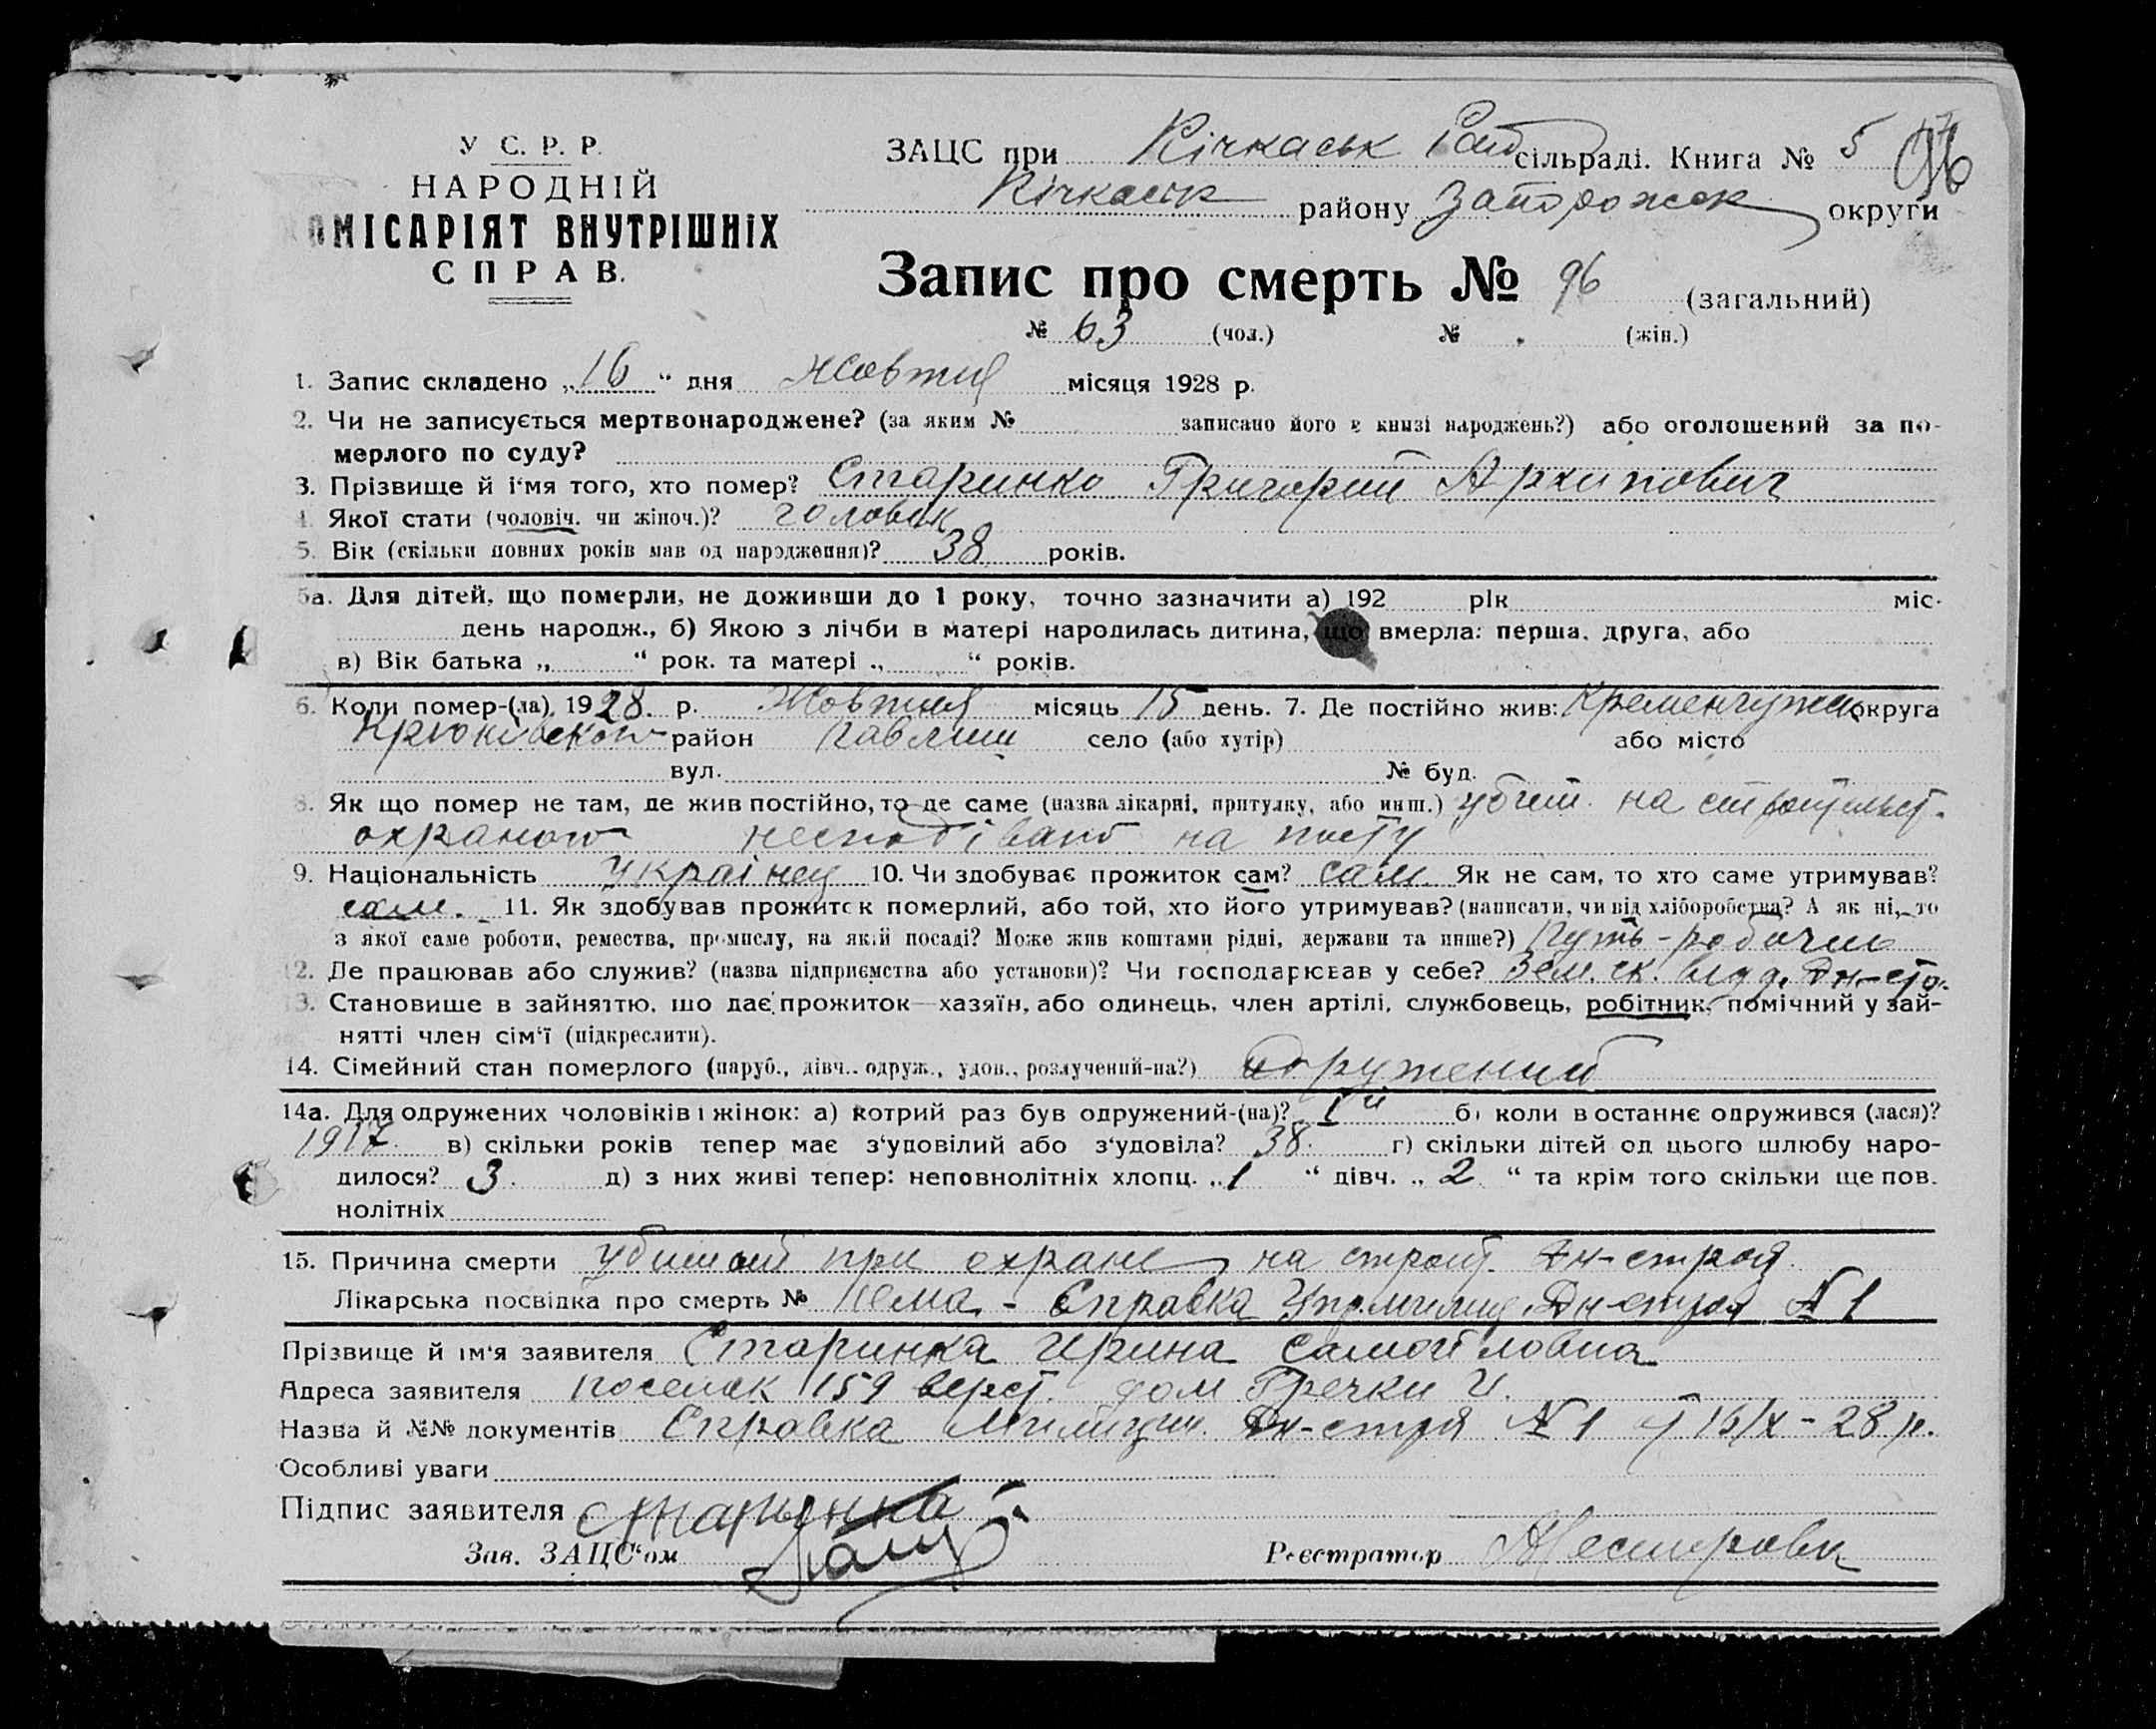 У С. Р. Р.
НАРОДНІЙ
КОМІСАРІЯТ ВНУТРІШНІХ
СПРАВ.
ЗАЦС при Кічкаськ Рай сільраді. Книга № 5 96
Кічкаськ району Запорожск округи
Запис про смерть № 96 (загальний)
№ 63 (чол.) № (жін.)
1. Запис складено „16“ дня Жовтня місяця 1928 р.
2. Чи не записується мертвонароджене? (за яким № записано його в книзі народжень?) або оголошений за по-
мерлого по суду?
3. Прізвище й і'мя того, хто помер? Старинко Григорий Архипович
4. Якої стати (чоловіч. чи жіноч.)? чоловік
5. Вік (скільки повних років мав од народження)? 38 років.
5а. Для дітей, що померли, не доживши до 1 року, точно зазначити а) 192 рік міс.
день народж., б) Якою з лічби в матері народилась дитина, що вмерла: перша, друга, або
в) Вік батька „ “ рок. та матері „ “ років.
6. Коли помер-(ла) 1928. р. Жовтня місяць 15 день. 7. Де постійно жив: Кременчужск округа
Крюківського район Павлиш село (або хутір) або місто
вул. № буд.
8. Як що помер не там, де жив постійно, то де саме (назва лікарні, притулку, або инш.) убит на строительст.
охраною несподівано на посту
9. Національність українец 10. Чи здобуває прожиток сам? сам. Як не сам, то хто саме утримував?
сам. 11. Як здобував прожиток померлий, або той, хто його утримував? (написати, чи від хліборобства? А як ні, то
з якої саме роботи, ремества, промислу, на якій посаді? Може жив коштами рідні, держави та инше?) Путь-рабочим
12. Де працював або служив? (назва підприємства або установи)? Чи господарював у себе? Зем. ск. Дн-стр.
13. Становище в зайняттю, що дає прожиток—хазяїн, або одинець, член артілі, службовець, робітник, помічний у зай-
нятті член сім'ї (підкреслити).
14. Сімейний стан померлого (паруб., дівч., одруж., удов., розлучений-на?) одружений
14а. Для одружених чоловіків і жінок: а) котрий раз був одружений-(на)? 1й б) коли востаннє одружився (лася)?
1917. в) скільки років тепер має з'удовілий або з'удовіла? 38. г) скільки дітей од цього шлюбу наро-
дилося? 3. д) з них живі тепер: неповнолітніх хлопц. „1 “ дівч. „ 2 “ та крім того скільки ще пов.
нолітніх
15. Причина смерти убитий при охране на строит. Дн-строя.
Лікарська посвідка про смерть № Нема - Справка Упр.милиц. Дн-строя №1
Прізвище й ім'я заявителя Старинка Ирина Самойловна
Адреса заявителя поселок 159 верст. дом Гречки И.
Назва й №№ документів Справка Милиции Дн-строя №1 16/X-28 р.
Особливі уваги
Підпис заявителя Старинка
Зав. ЗАЦС'ом Реєстратор